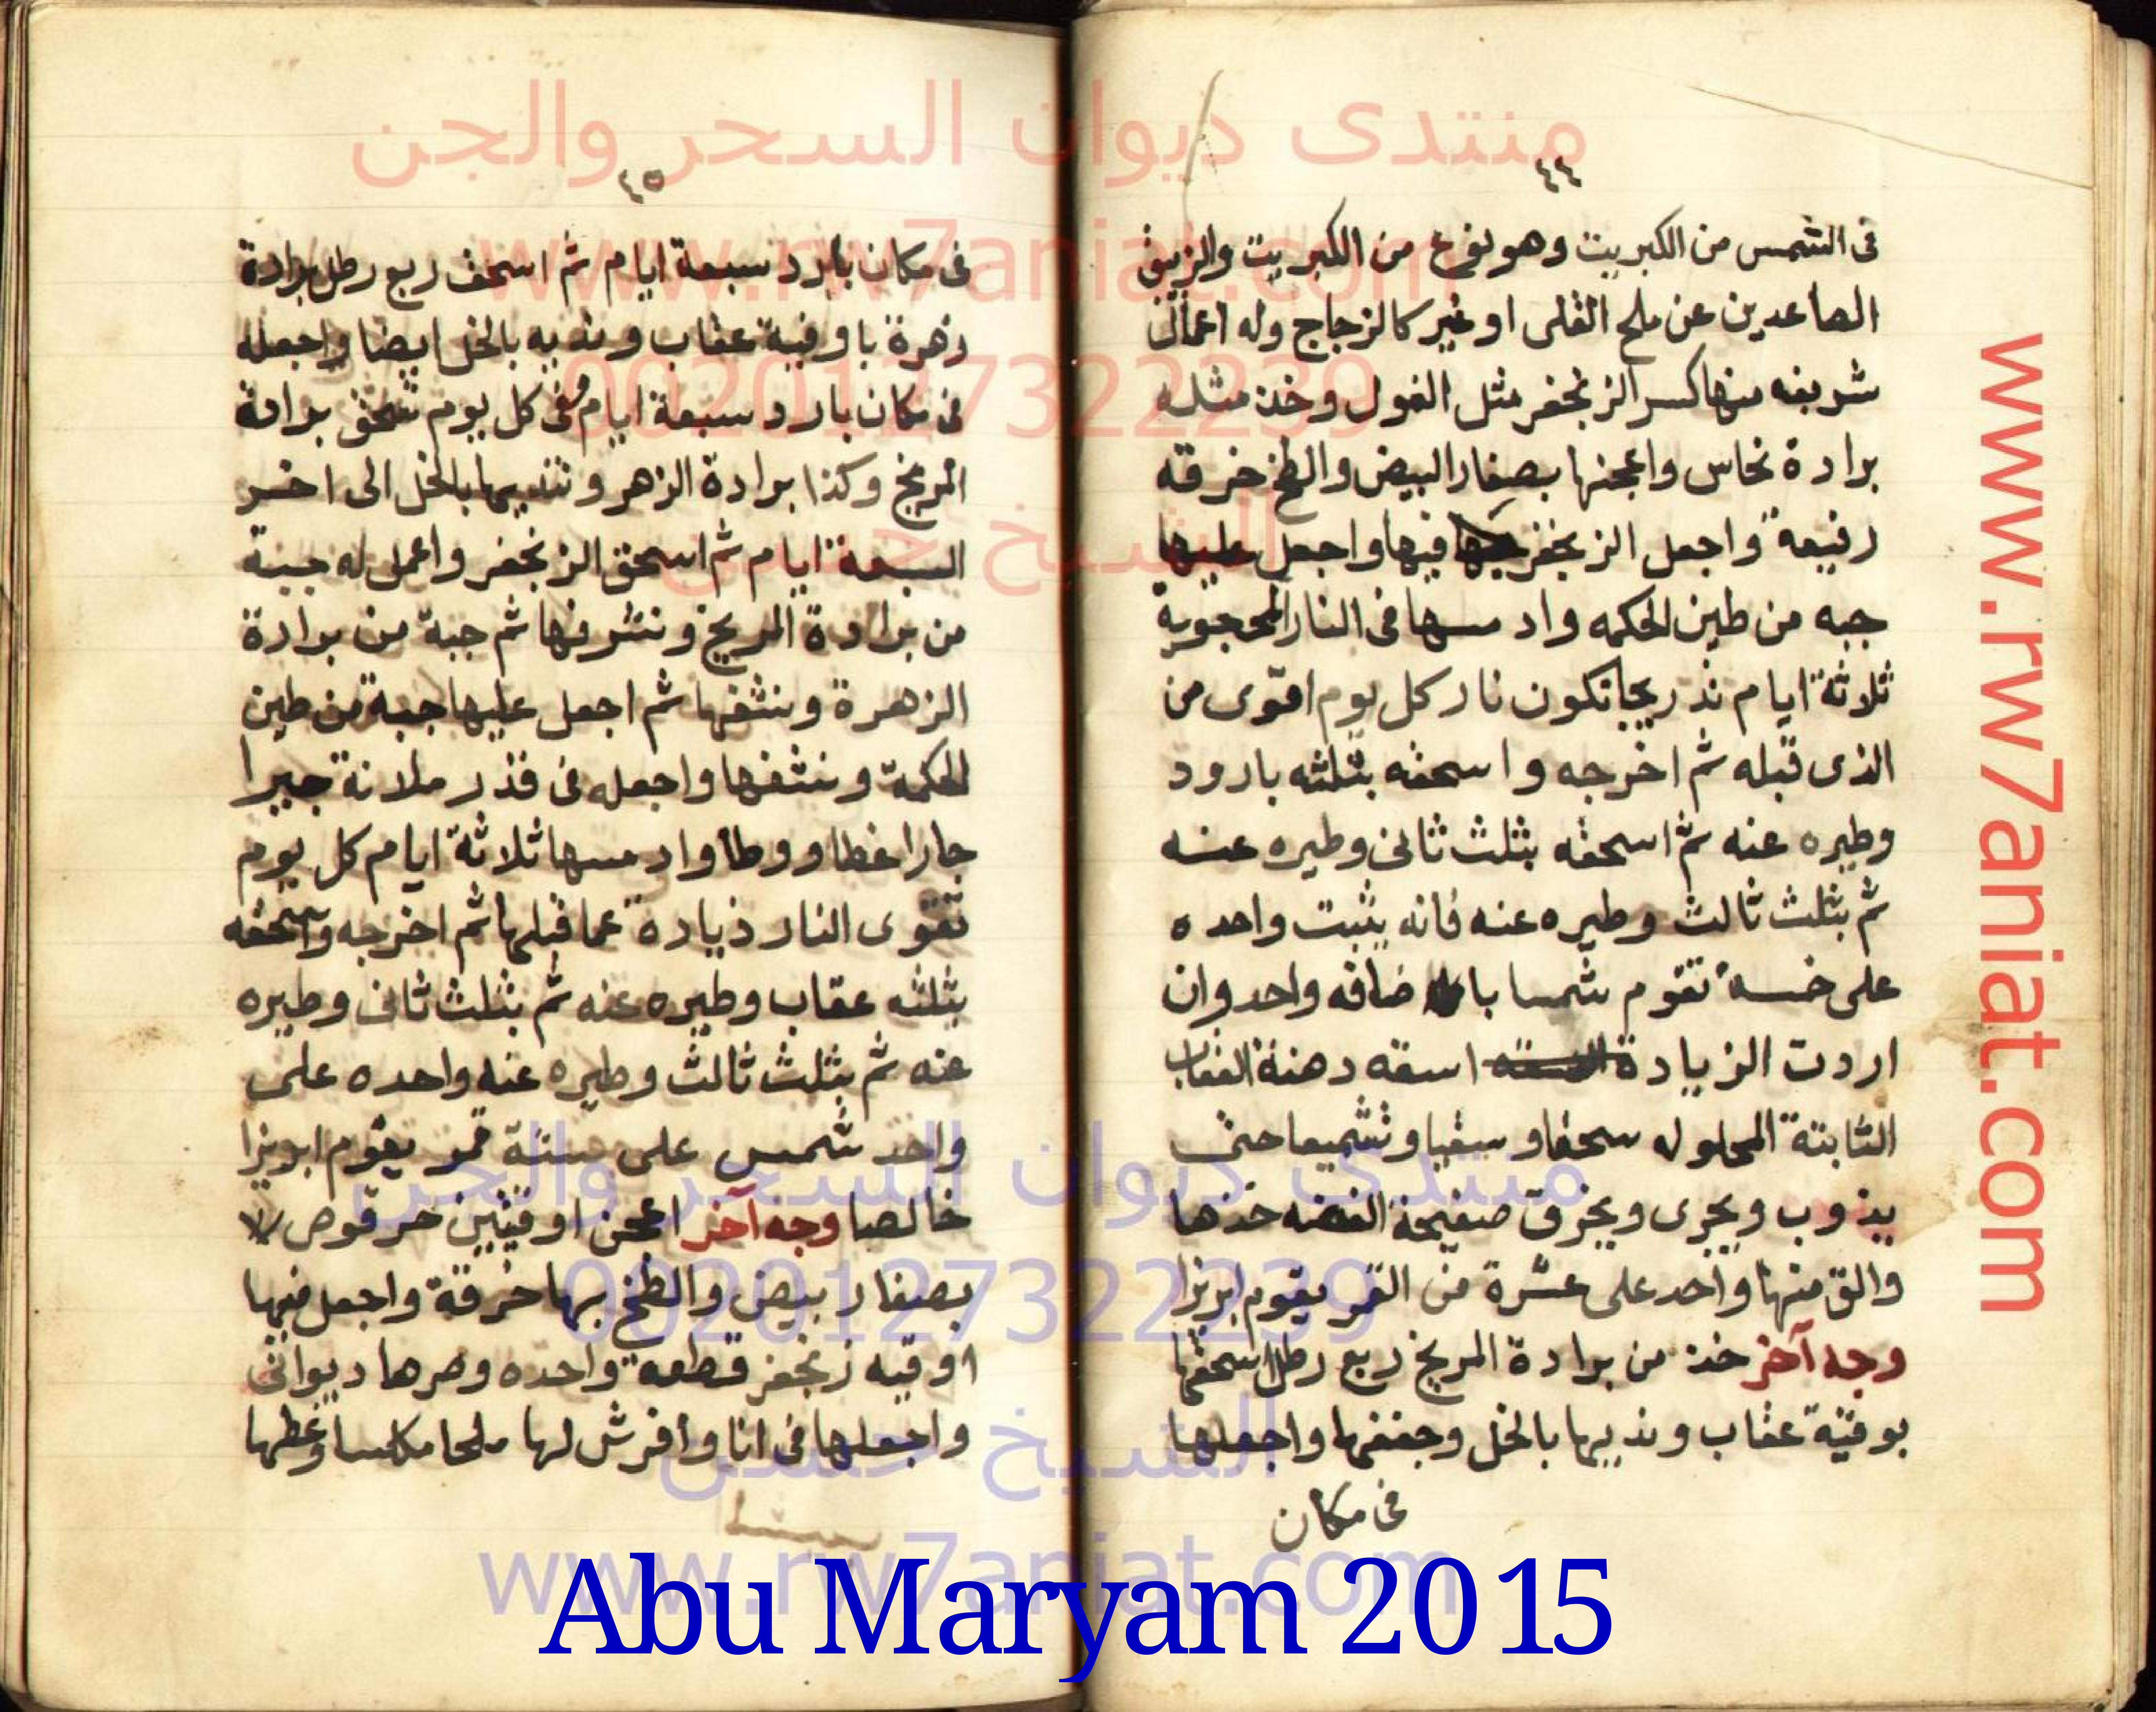 منتدى ديوان السحر والجن
www.rw7aniat.com
00201127322239
الشيخ حسن
www.rw7aniat.com
٤٤
فى الشمس من الكبريت وهو نوع من الكبريت والزيبق
الصاعدين عن ملح القلى او غير كالزجاج وله اعمال
شريفه منها كسر الزنجفر مثل الفول وخذ مثله
برادة نحاس واعجنها بصفار البيض والطخ خرقه
رفيعة واجعل الزنجفر فيها واجعل عليها
جبه من طين الحكمه وادمسها فى النار
ثلاثة ايام تدريجا تكون نار كل يوم اقوى من
الذى قبله ثم اخرجه واسحقه بثلثه بارود
وطيره عنه ثم اسحقه بثلث ثانى وطيره عنه
ثم بثلث ثالث وطيره عنه فانه يثبت واحده
على خمسة تقوم شمسا باضافه واحد وان
اردت الزيادة اسقه دهنة العقاب
الثابتة المحلوله سحقا وسقيا وتشميعا حتى
يذوب ويجرى ويخرق صفيحة الفضه خذها
والق منها واحد على عشرة من القمر يقوم ابريزا
وجه آخر خذ من برادة المريخ ربع رطل اسحقها
بوقية عقاب ونديها بالخل وجففها واجعلها
فى مكان
٤٥
فى مكان بارد سبعة ايام ثم اسحق ربع رطل برادة
زهرة باوقية عقاب ونديه بالخل ايضا واجعله
فى مكان بارد سبعة ايام وفى كل يوم تسحق برادة
المريخ وكذا برادة الزهر وتنديها بالخل الى اخر
السبعة ايام ثم اسحق الزنجفر واعمل له جبة
من برادة المريخ وتنشفها ثم جبة من برادة
الزهرة وتنشفها ثم اجعل عليها جبة من طين
الحكمة وتنشفها واجعله فى قدر ملانة جيرا
حارا غطا ووطا وادمسها ثلاثة ايام كل يوم
تقوى النار زيادة عما قبلها ثم اخرجه واسحقه
بثلثه عقاب وطيره عنه ثم بثلث ثانى وطيره
عنه ثم بثلث ثالث وطيره عنه واحده على
واحد شمس على ستة قمر يقوم ابريزا
خالصا وجه آخر اعجن اوقيتين حرقوص
بصفار بيض والطخ بها خرقة واجعل فيها
اوقيه زنجفر قطعة واحده وصرها ديوانى
واجعلها فى انا وافرش لها ملحا مكلسا وغطها
منتدى ديوان السحر والجن
00201127322239
الشيخ حسن
www.rw7aniat.com
Abu Maryam 2015